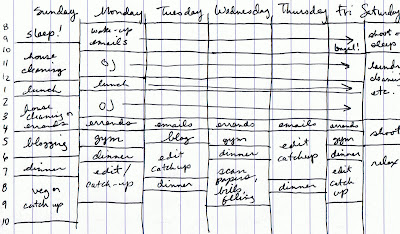 Sunday Monday Tuesday Wednesday Thursday Fri Saturday
8
9 sleep! wake-up shoot or
10 emails bagel! sleep
11 house OJ laundry
12 cleaning cleaning
1 lunch lunch etc.
2 house OJ
3 cleaning or
4 errands errands emails errands emails errands shoot
5 blogging gym blog gym edit gym
6 dinner edit dinner catchup dinner relax
7 dinner edit/ catchup scan edit
8 veg or catch-up dinner papers, dinner catch
9 catch up bills, up
10 filing